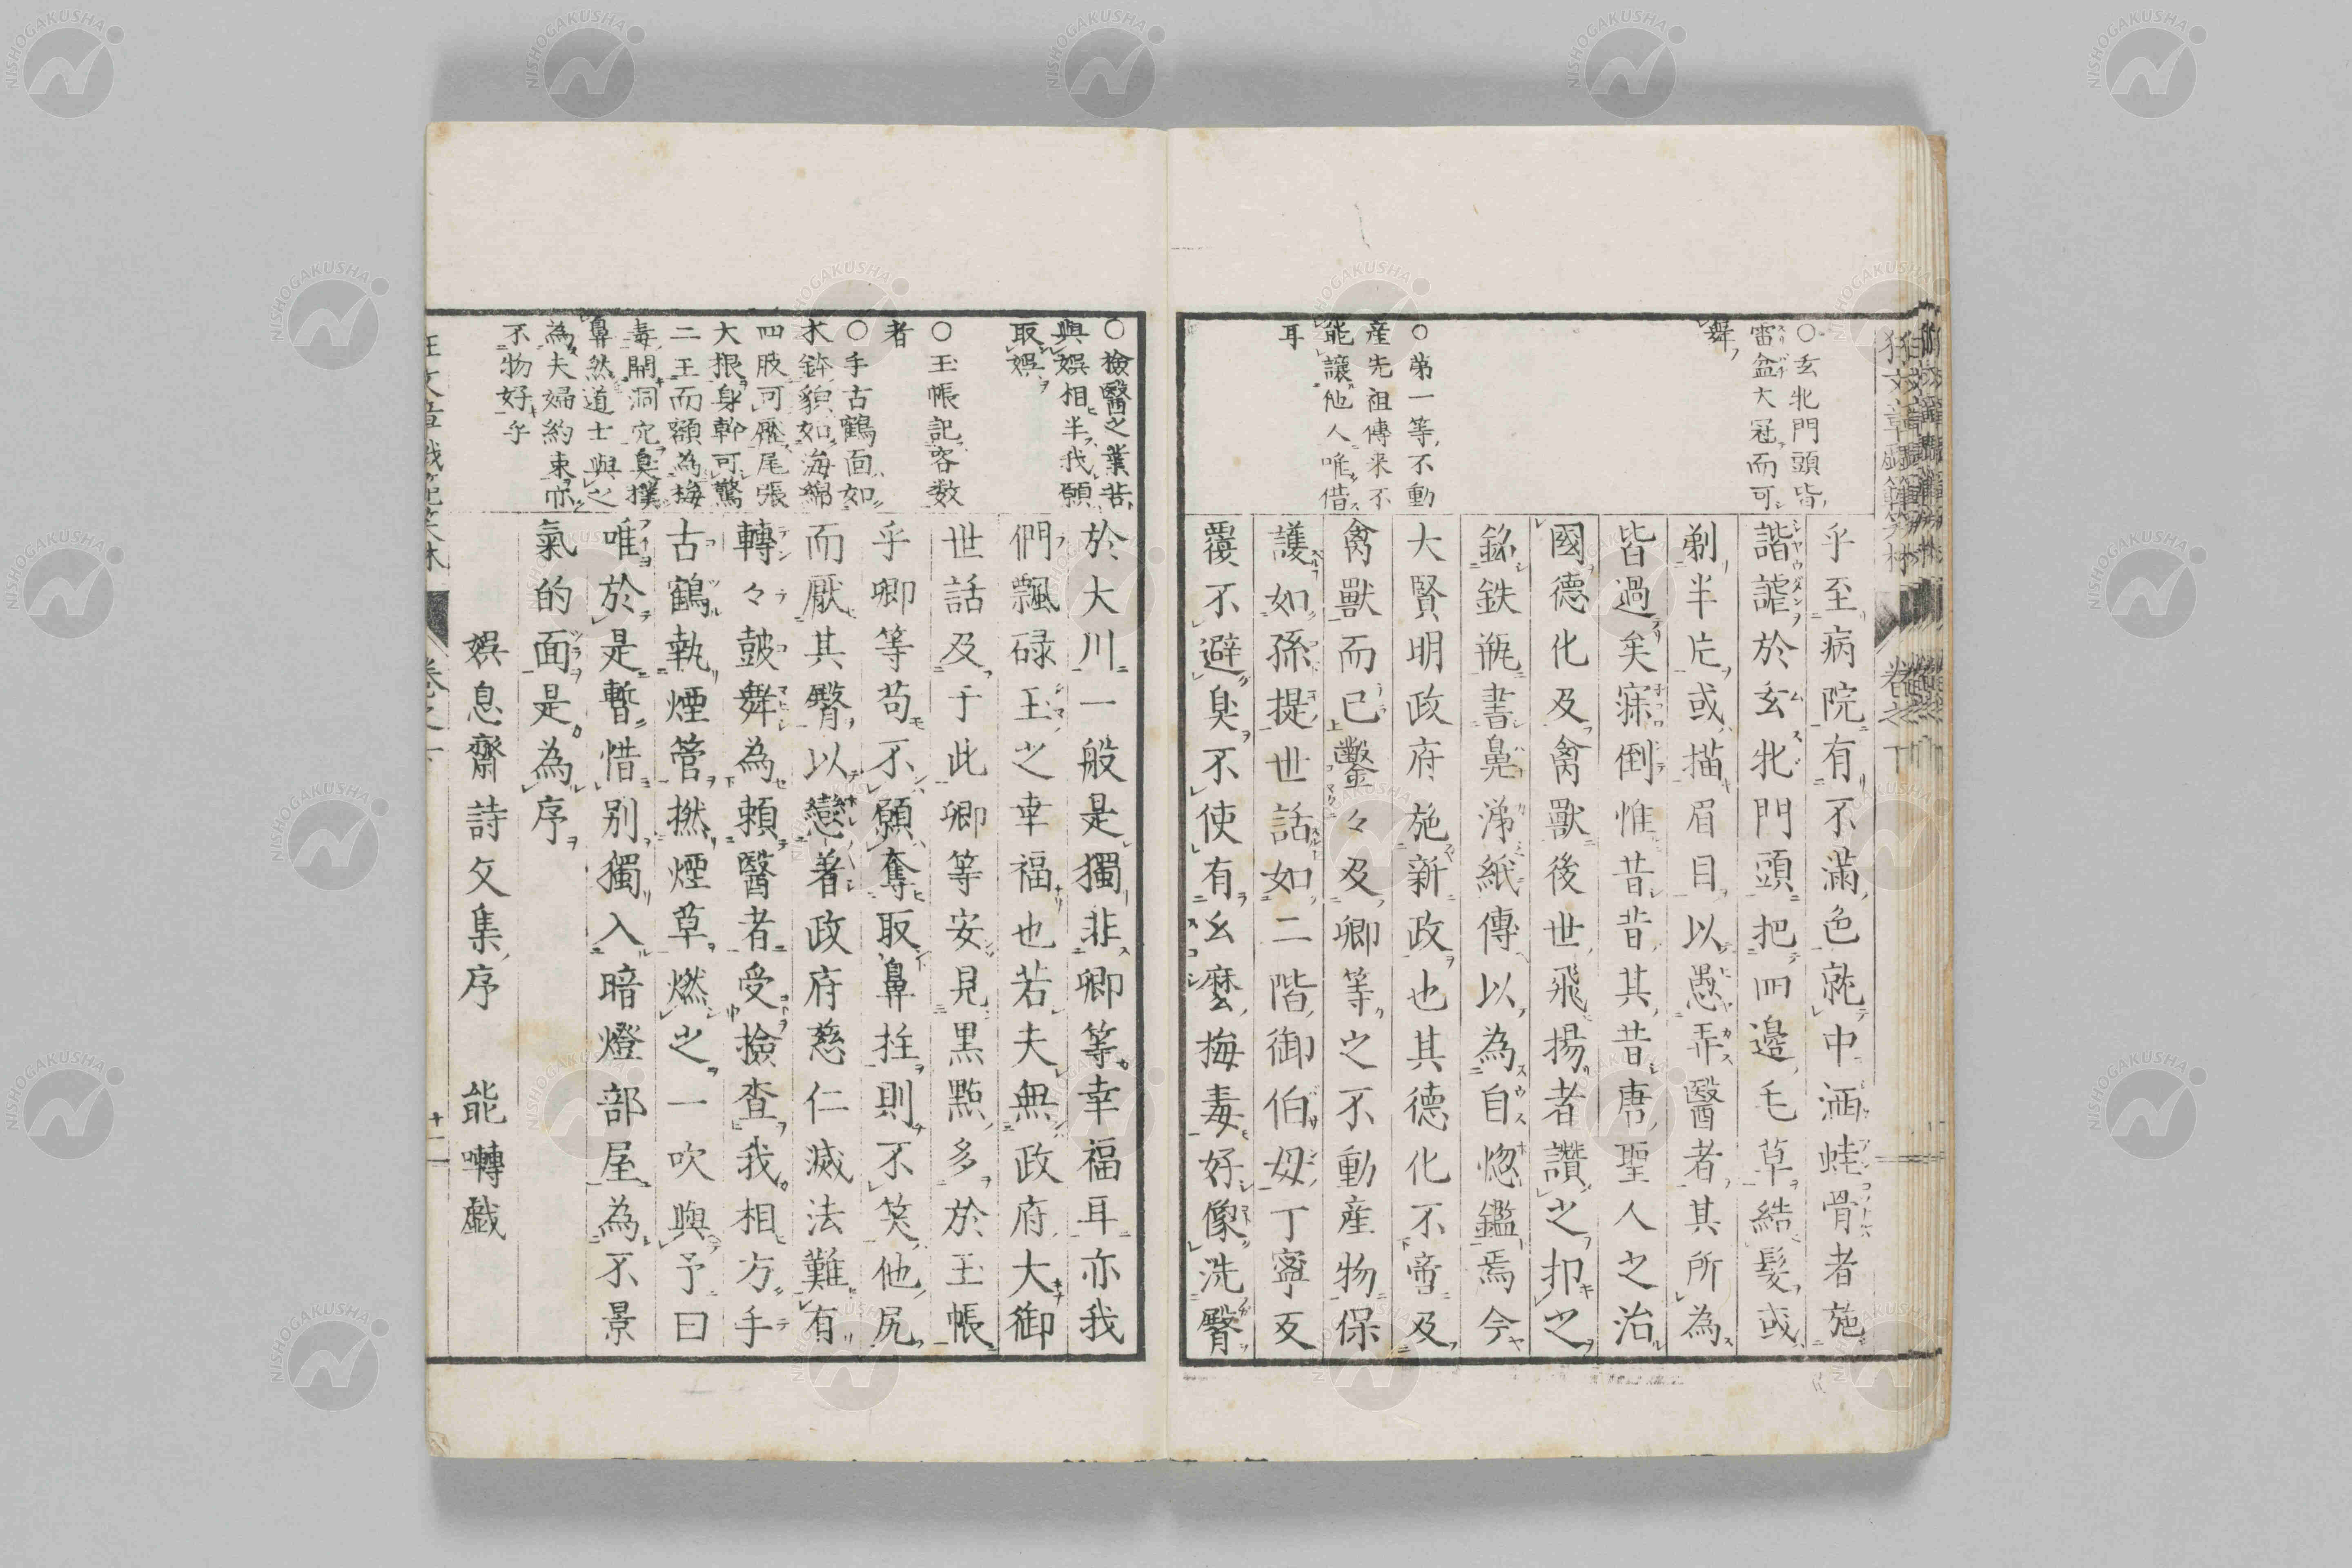 ○玄牝門頭皆
雷盆大冠而可
舞
○第一等不動
産先祖傳来不
能讓他人唯借
耳
乎至病院有不滿色就中洒蛙骨者施
諧謔於玄牝門頭把四邉毛草結髮或
剃半片或描眉目以愚弄醫者其所為
皆過矣寐倒惟昔昔其昔唐聖人之治
國德化及禽獸後世飛揚者讚之抑之
銘鉄瓶書鳧涕紙傳以為自惚鑑焉今
大賢明政府施新政也其德化不啻及
禽獸而已鑿々及卿等之不動産物保
護如孫提世話如二階御伯母丁寧反
覆不避臭不使有幺麼梅毒好像洗臀
○撿醫之業苦
與娯相半我願
取娯
○玉帳記客数
者
○手古鶴面如
木鉢貌如海綿
四肢可壓尾張
大根身軀可驚
二王而額為梅
毒開洞穴臭撲
鼻然道士與之
為夫婦約束亦
不物好乎
於大川一般是獨非卿等幸福耳亦我
們飄碌玉之幸福也若夫無政府大御
世話及于此卿等安見黒點多於玉帳
乎卿等苟不願奪取鼻拄則不笑他尻
而厭其臀以戀著政府慈仁滅法難有
轉々鼓舞為頼醫者受撿查我相方手
古鶴執煙管撚煙草燃之一吹與予曰
唯於是暫惜别獨入暗燈部屋為不景
氣的面是為序
娯息齋詩文集序　能囀戯
狂文章戯範笑林　卷之下　十二
NISHOGAKUSHA